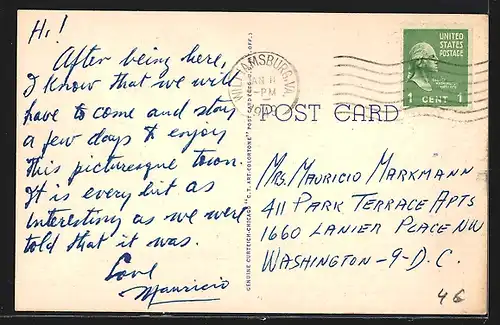 Hi!
After being here,
I know that we will
have to come and stay
a few days to enjoy
this picturesque town.
It is every bit as
interesting as we were
told that it was.
Love
Mauricio
GENUINE CURTEICH-CHICAGO "C.T. ART-COLORTONE" POST CARD
WILLIAMSBURG, VA.
-PM
UNITED
STATES
POSTAGE
1 CENT 1
POST CARD
Mrs. Mauricio Markmann
411 Park Terrace Apts
1660 Lanier Place NW
Washington-9-D.C.